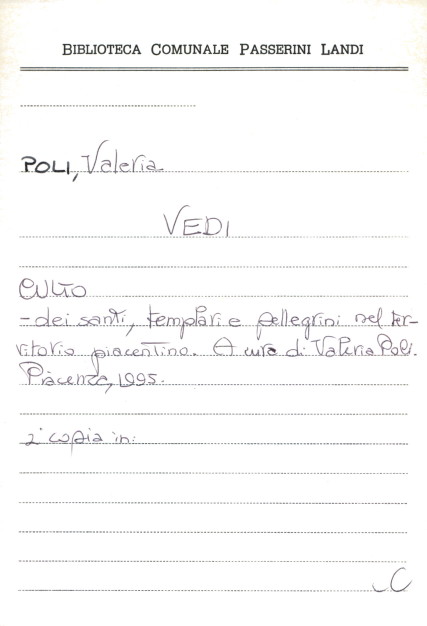 BIBLIOTECA COMUNALE PASSERINI LANDI
POLI, Valeria
VEDI
CULTO
- dei santi, templari e pellegrini nel ter-
ritorio piacentino. A cura di Valeria Poli.
Piacenza, 1995.
2ª copia in: